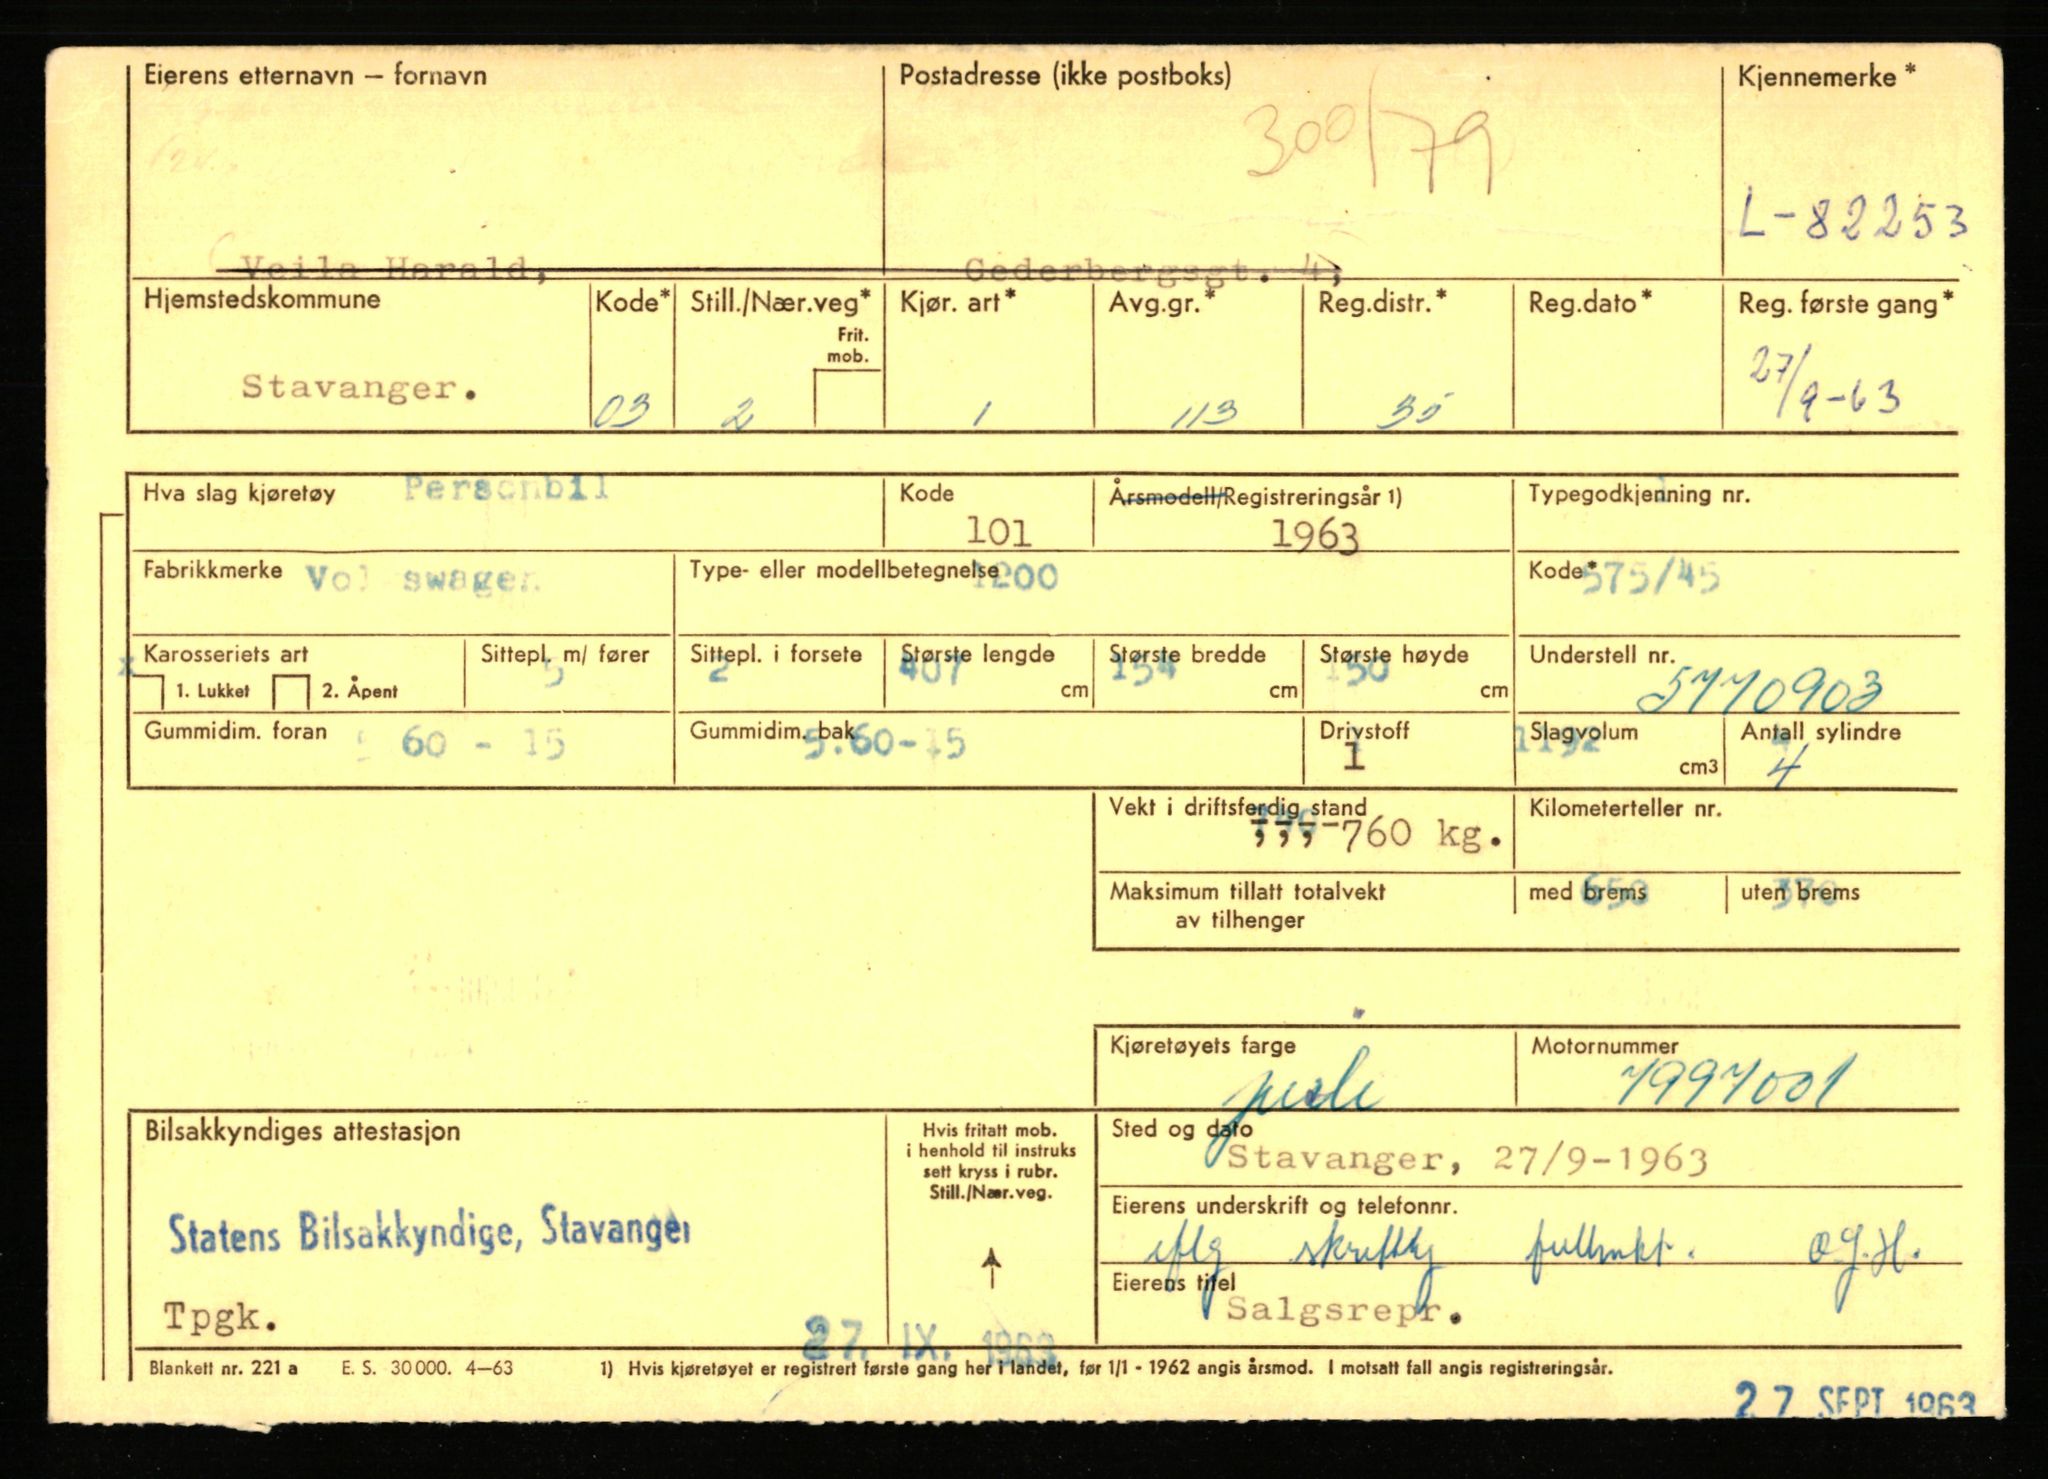 Eierens etternavn — fornavn
Postadresse (ikke postboks)
Kjennemerke *
300/79
L-82253
Veila Harald,
Cederbergsgt. 4,
Hjemstedskommune
Kode*
Still./Nær.veg*
Frit.
mob.
Kjør. art*
Avg.gr.*
Reg.distr.*
Reg.dato*
Reg. første gang*
Stavanger.
03
2
1
113
35
27/9-63
Hva slag kjøretøy Personbil
Kode
101
Årsmodell/Registreringsår 1)
1963
Typegodkjenning nr.
Fabrikkmerke Vol swagen
Type- eller modellbetegnelse 1200
Kode* 575/45
Karosseriets art
x
1. Lukket
2. Åpent
Sittepl. m/ fører
5
Sittepl. i forsete
2
Største lengde
407
cm
Største bredde
154
cm
Største høyde
150
cm
Understell nr.
5770903
Gummidim. foran 5 60 - 15
Gummidim. bak 5.60-15
Drivstoff
1
Slagvolum
1192
cm3
Antall sylindre
4
Vekt i driftsferdig stand
760 kg.
Kilometerteller nr.
Maksimum tillatt totalvekt
av tilhenger
med brems
650
uten brems
370
Kjøretøyets farge
perle
Motornummer
7997001
Bilsakkyndiges attestasjon
Hvis fritatt mob.
i henhold til instruks
sett kryss i rubr.
Still./Nær.veg.
Sted og dato
Stavanger, 27/9-1963
Statens Bilsakkyndige, Stavanger
Eierens underskrift og telefonnr.
iflg skriftlig fullmakt. O.J.H.
Tpgk.
27. IX. 1963
Eierens titel
Salgsrepr.
Blankett nr. 221 a E. S. 30 000. 4—63
1) Hvis kjøretøyet er registrert første gang her i landet, før 1/1 - 1962 angis årsmod. I motsatt fall angis registreringsår.
27 SEPT 1963